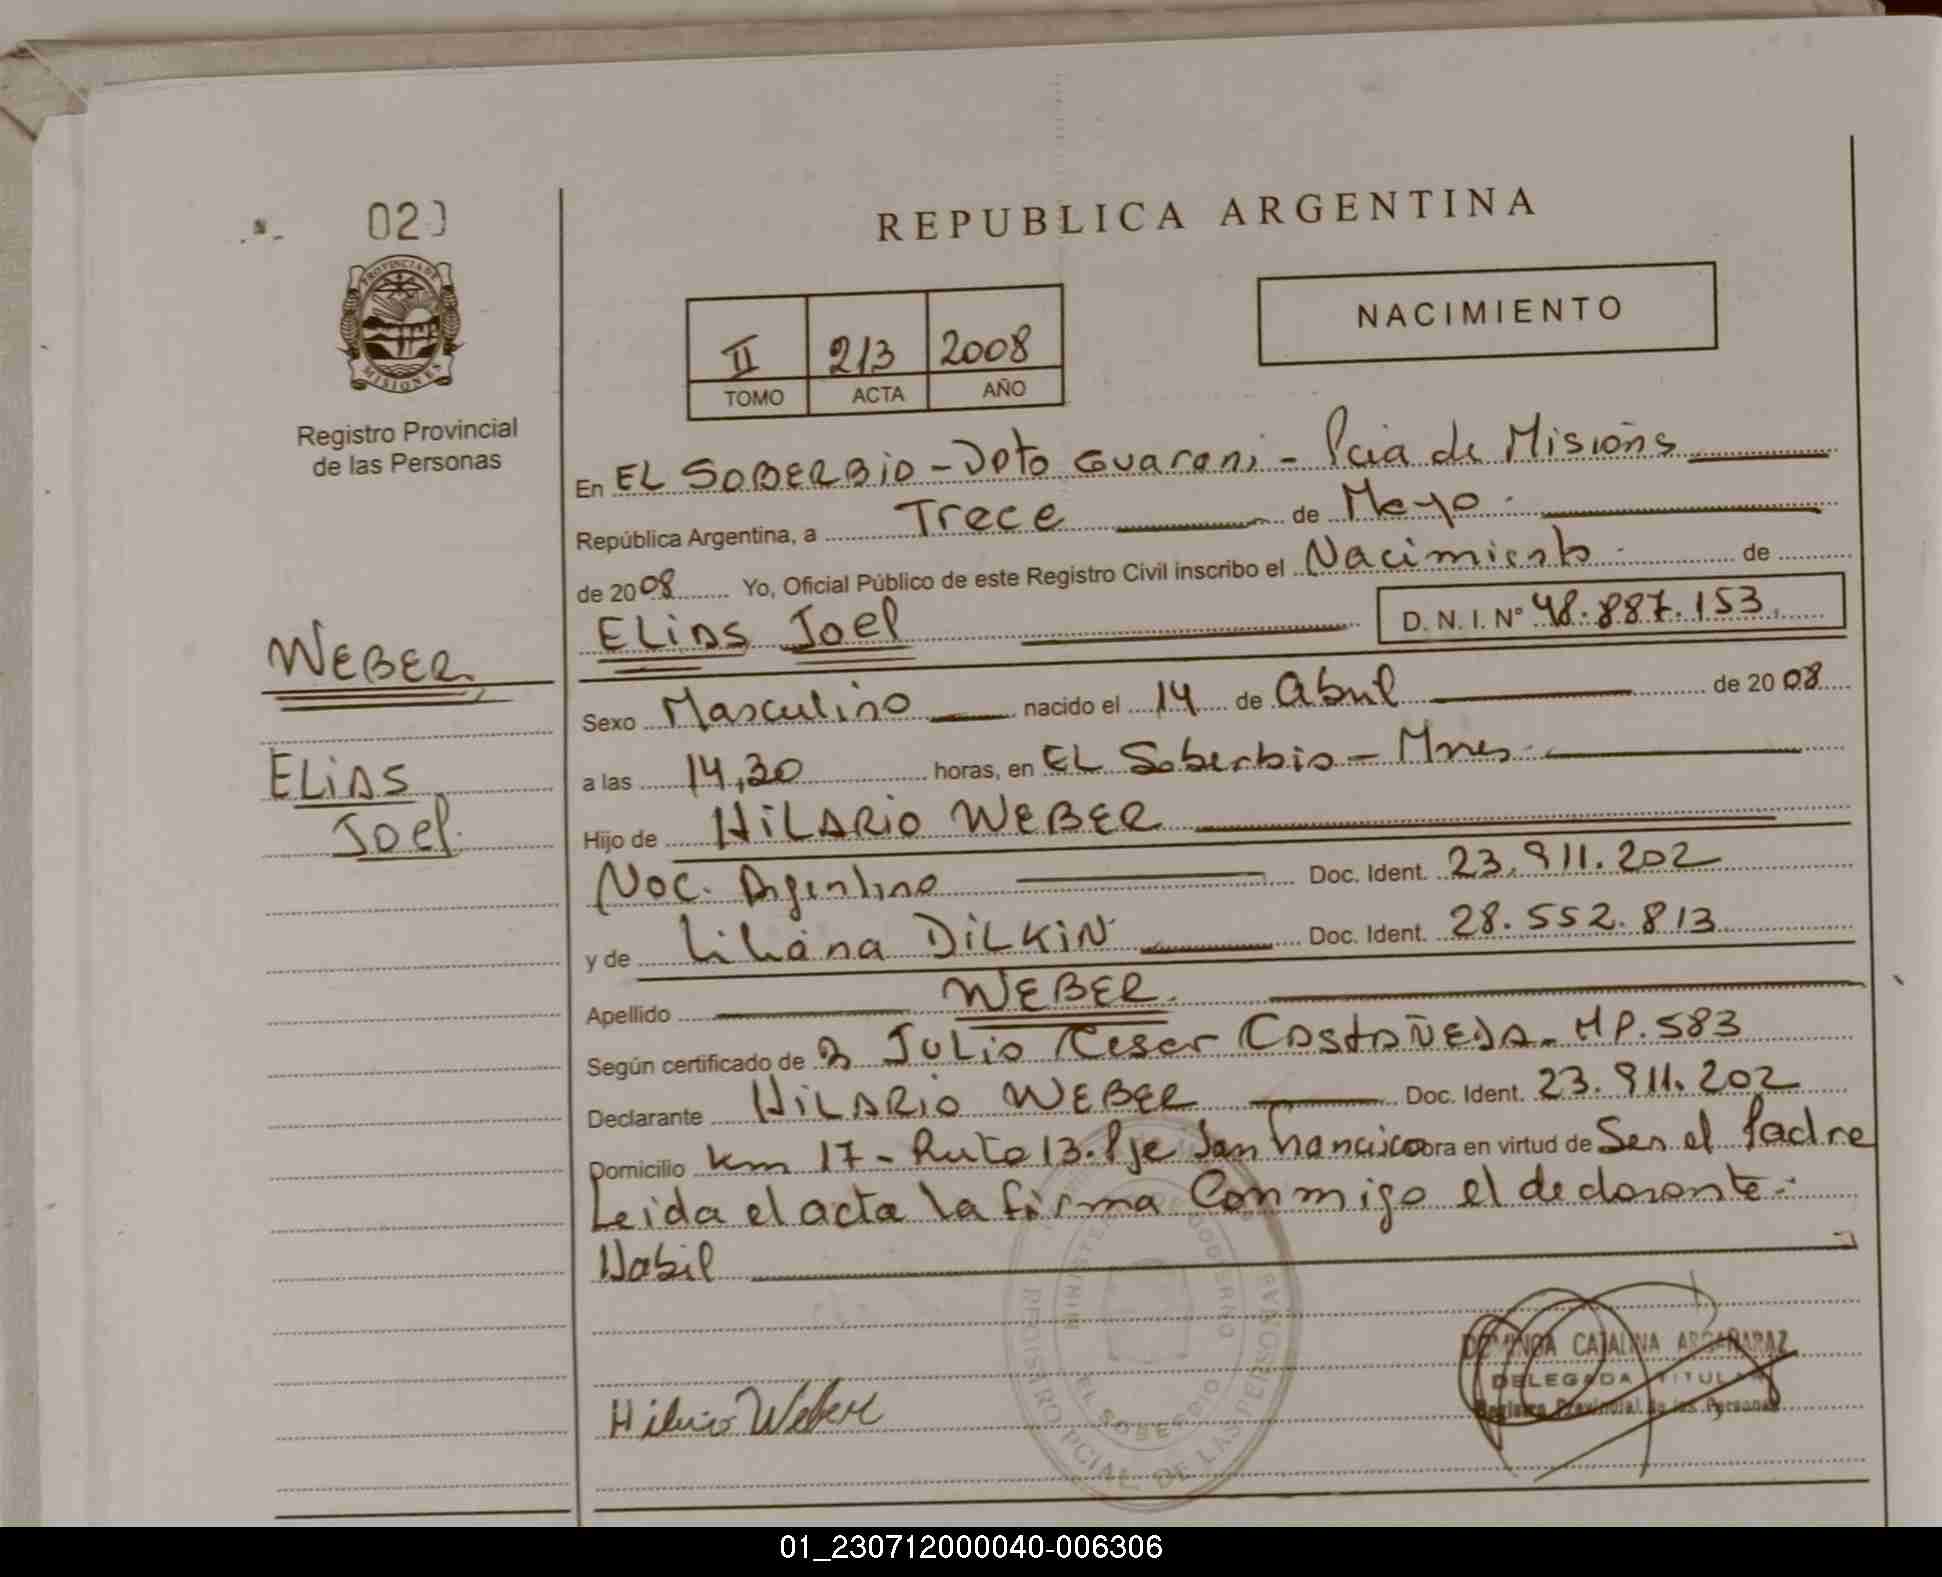 02
PROVINCIA DE
MISIONES
Registro Provincial
de las Personas
WEBER
ELiAS
Joel
REPUBLICA ARGENTINA
NACIMIENTO
II 213 2008
TOMO ACTA AÑO
En EL SOBERBIO - Dpto Guarani - Pcia de Misiones
República Argentina, a Trece de Mayo
de 2008 Yo, Oficial Público de este Registro Civil inscribo el Nacimiento de
ELiAS Joel D. N. I. Nº 48.887.153
Sexo Masculino nacido el 14 de Abril de 2008
a las 14,30 horas, en EL Soberbio - Mnes
Hijo de HiLARio WEBER
Nac. Argentino Doc. Ident. 23.911.202
y de Liliana DiLKiN Doc. Ident. 28.552.813
Apellido WEBER
Según certificado de JULio Cesar CASTAÑEDA - MP. 583
Declarante HiLARio WEBER Doc. Ident. 23.911.202
Domicilio Km 17 - Ruta 13. Pje San Francisco obra en virtud de Ser el Padre
Leida el acta la firma Conmigo el declarante.
Habil
Hilario Weber
MINISTERIO DE GOBIERNO
EL SOBERBIO
REGISTRO PCIAL. DE LAS PERSONAS
DOMINGA CATALINA ARGAÑARAZ
DELEGADA TITULAR
Registro Provincial de las Personas
01_230712000040-006306